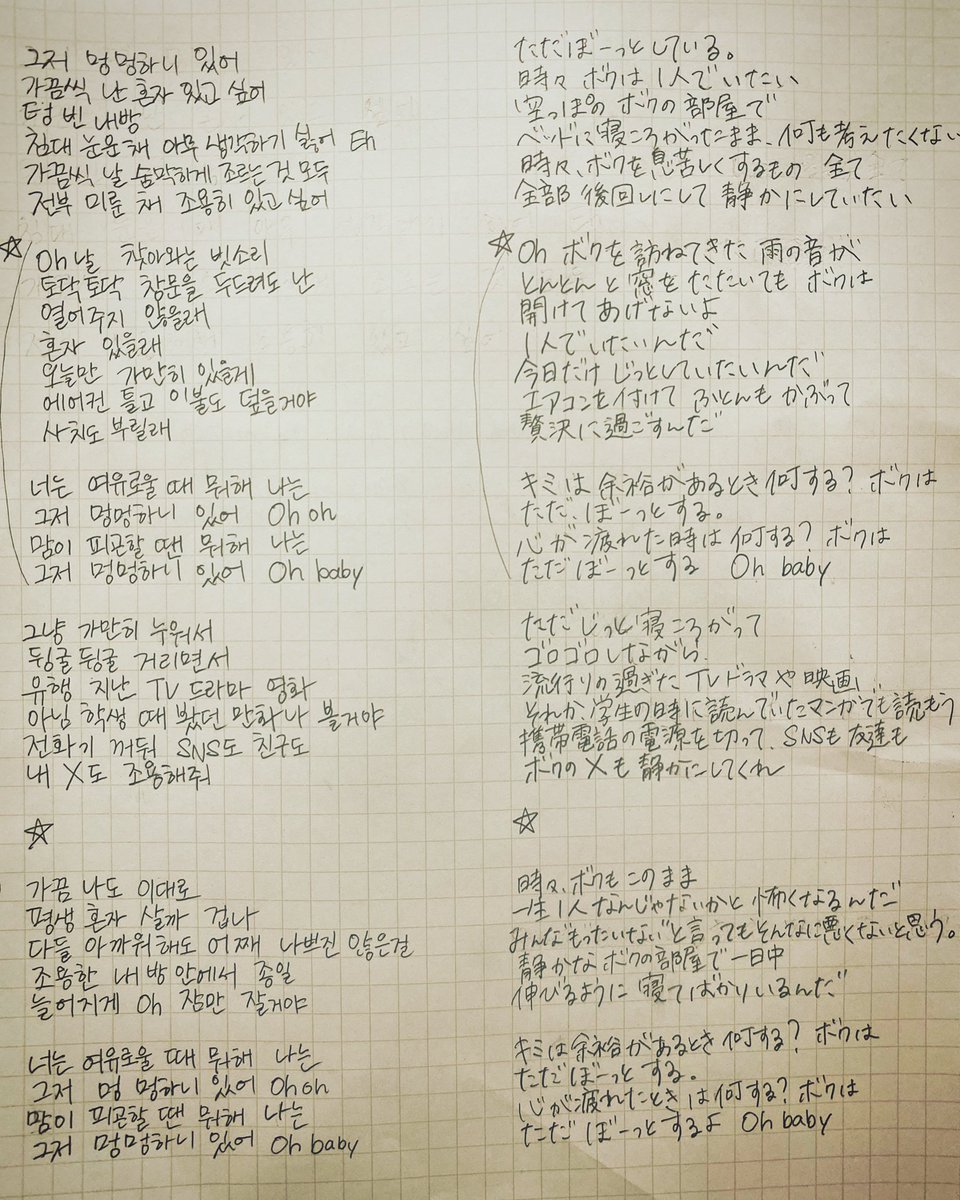 그저 멍멍하니 있어
가끔씩 난 혼자 있고 싶어
텅 빈 내방
침대 눈운채 아무 생각하기 싫어 Eh
가끔씩 날 숨막히게 조르는것 모두
전부 미룬 채 조용히 있고싶어
☆ Oh 날 찾아와는 빗소리
토닥토닥 창문을 두드려도 난
열어주지 않을래
혼자 있을래
오늘만 가만히 있을게
에어컨 틀고 이불도 덮을거야
사치도부릴래
너는 여유로울 때 뭐해 나는
그저 멍멍하니 있어 Oh oh
맘이 피곤할 땐 뭐해 나는
그저 멍멍하니 있어 Oh baby
그냥 가만히 누워서
뒹굴뒹굴 거리면서
유행 지난 TV 드라마 영화
아님 학생 때 봤던 만화나 볼거야
전화기 꺼둬 SNS도 친구도
내 X도 조용해줘
☆
가끔 나도 이대로
평생 혼자 살까 겁나
다들 아까워해도 어째 나쁘진 않은걸
조용한 내 방 안에서 종일
늘어지게 Oh 잠만 잘거야
너는 여유로울 때 뭐해 나는
그저 멍 멍하니 있어 Oh oh
맘이 피곤할 땐 뭐해 나는
그저 멍멍하니 있어 Oh baby
ただぼーっとしている。
時々ボクは1人でいたい
空っぽのボクの部屋で
ベッドに寝ころがったまま、何も考えたくない
時々、ボクを息苦しくするもの 全て
全部後回しにして静かにしていたい
☆ Oh ボクを訪ねてきた雨の音が
とんとんと窓をたたいてもボクは
開けてあげないよ
1人でいたいんだ
今日だけじっとしていたいんだ
エアコンを付けてふとんもかぶって
贅沢に過ごすんだ
キミは余裕があるとき何する？ボクは
ただ、ぼーっとする。
心が疲れた時は何する？ボクは
ただぼーっとする Oh baby
ただじっと寝ころがって
ゴロゴロしながら、
流行りの過ぎたTVドラマや映画
それか、学生の時に読んでいたマンガでも読もう
携帯電話の電源を切って、SNSも友達も
ボクのXも静かにしてくれ
☆
時々、ボクもこのまま
一生1人なんじゃないかと怖くなるんだ
みんな"もったいない"と言ってもそんなに悪くないと思う。
静かなボクの部屋で一日中
伸びるように寝てばかりいるんだ
キミは余裕があるとき何する？ボクは
ただぼーっとする。
心が疲れたときは何する？ボクは
ただぼーっとするよ Oh baby